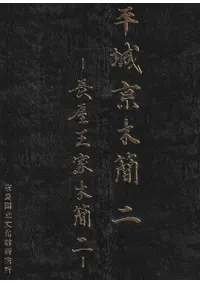 平城京木簡二
―長屋王家木簡二―
奈良国立文化財研究所